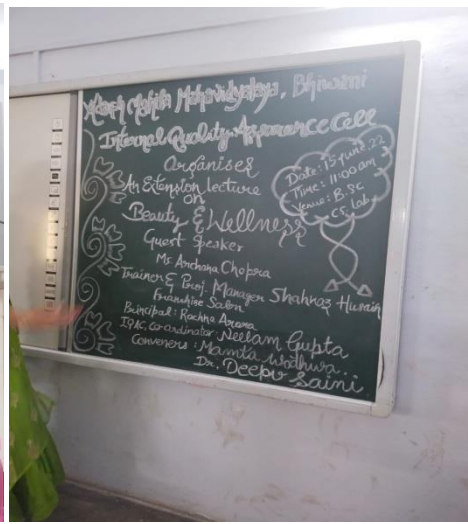 Adarsh Mahila Mahavidyalaya, Bhiwani
Internal Quality Assurance Cell
Organises
An Extension lecture
on
Beauty & Wellness
Guest Speaker
Ms Archana Chopra
Trainer & Proj. Manager Shahnaz Husain
Franchise Salon
Principal: Rachna Arora
IQAC, co-ordinator Neelam Gupta
Conveners: Mamta Wadhwa..
Dr. Deepu Saini.
Date: 15 June.22
Time: 11:00am
Venue: B.SC
CS Lab